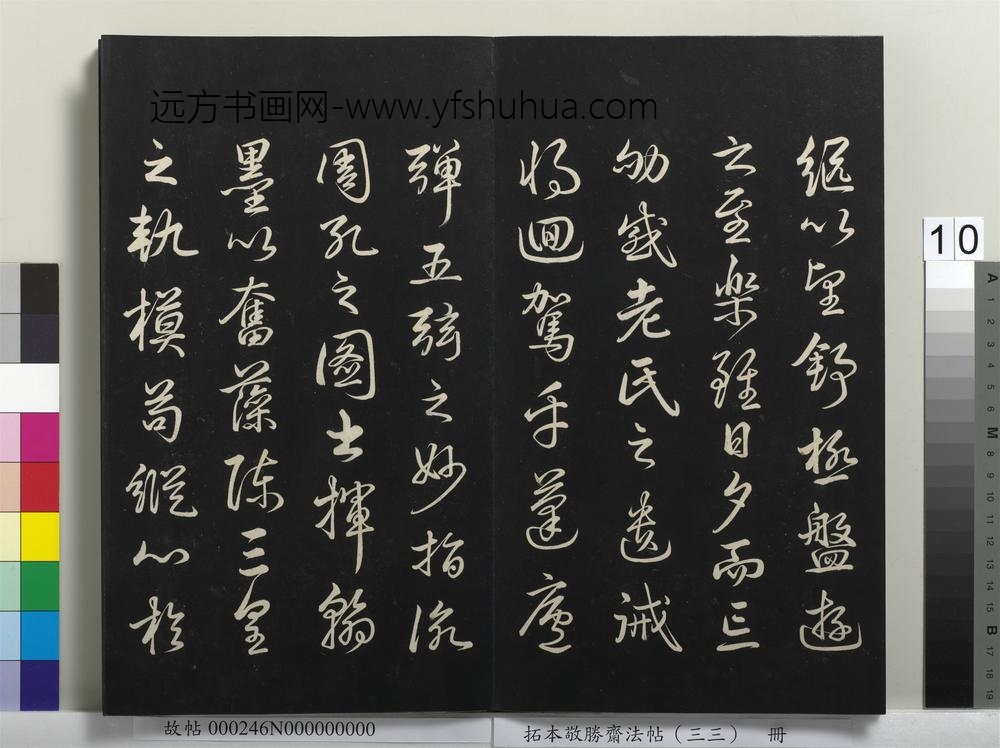 远方书画网-www.yfshuhua.com
繼以望舒極盤遊
之至樂雖日夕而亡
劬感老氏之遺誡
將迴駕乎蓬廬
彈五弦之妙指詠
周孔之圖書揮翰
墨以奮藻陳三皇
之軌模苟縱心於
10
A 1 2 3 4 5 6 M 8 9 10 11 12 13 14 15 B 17 18 19
故帖 000246N000000000
拓本敬勝齋法帖(三三) 冊